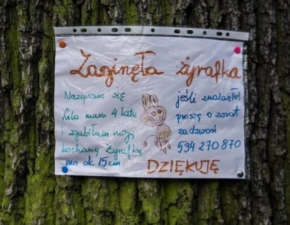 Zaginęła żyrafka
Nazywam się
Lila mam 4 lata
i zgubiłam moją
kochaną żyrafkę
ma ok 15cm
jeśli znalazłeś
proszę o zwrot
zadzwoń
534 270 870
DZIĘKUJĘ